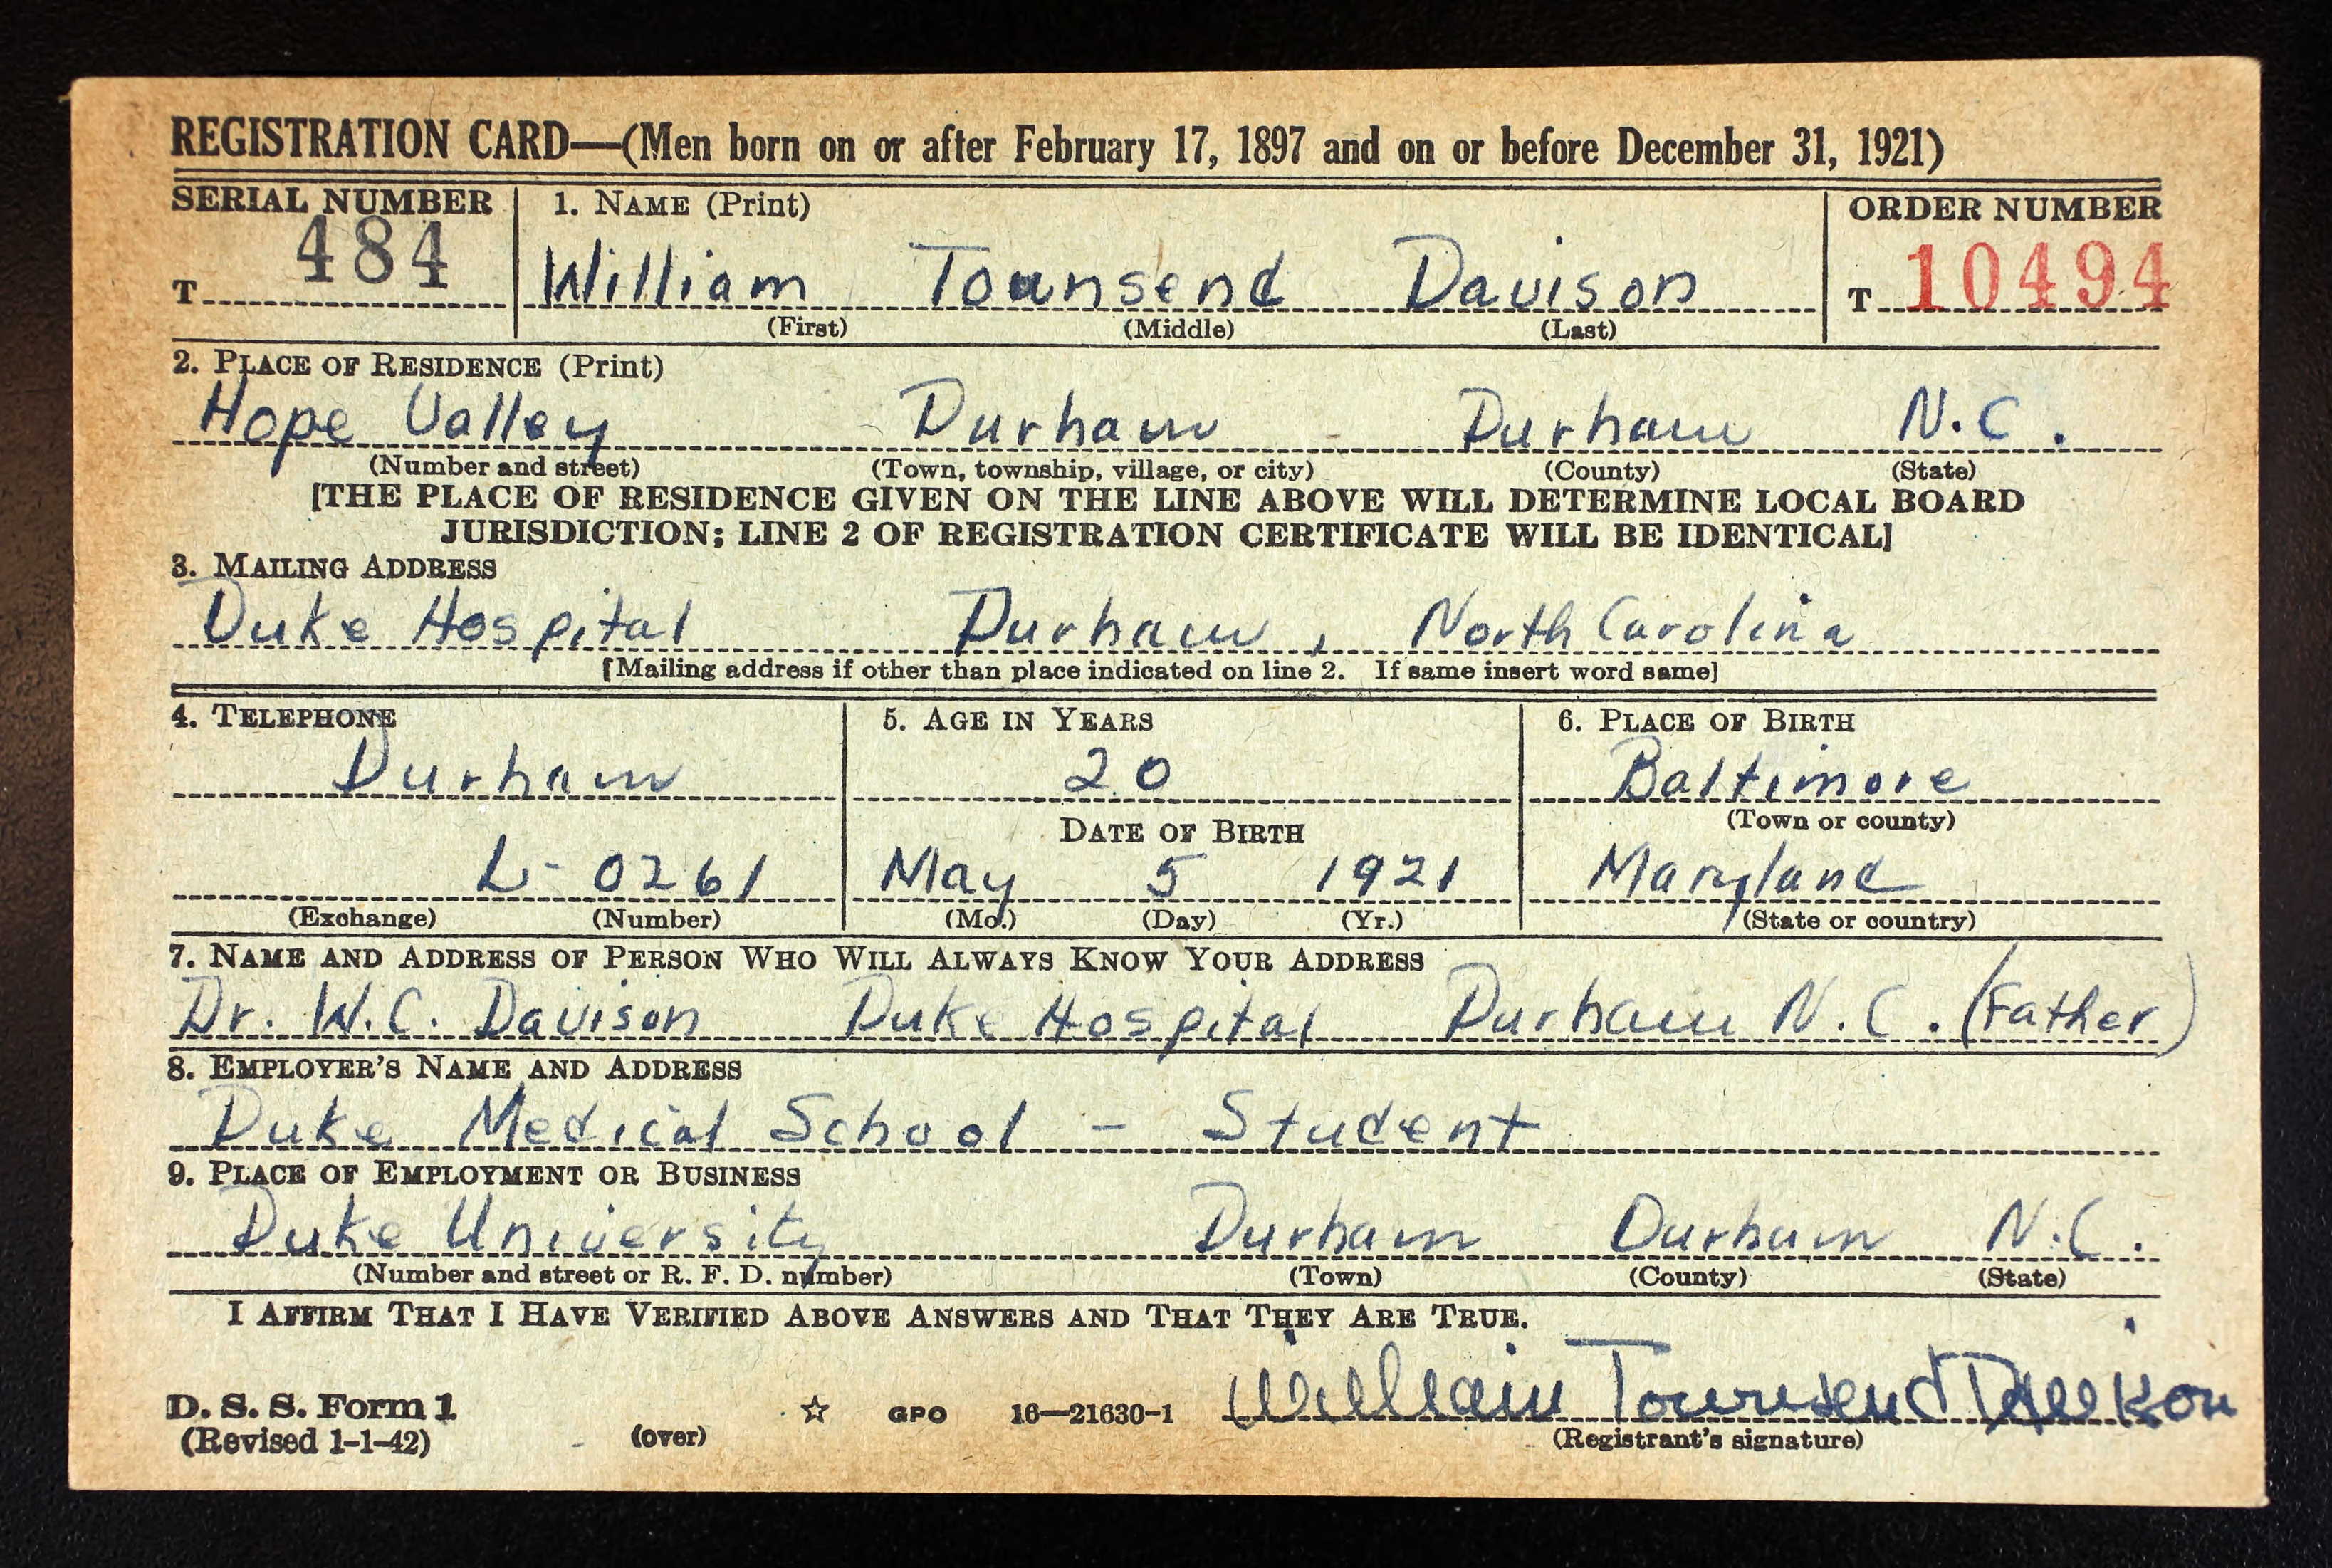 REGISTRATION CARD—(Men born on or after February 17, 1897 and on or before December 31, 1921)
SERIAL NUMBER 1. NAME (Print) ORDER NUMBER
T 484 William Townsend Davison T 10494
(First) (Middle) (Last)
2. PLACE OF RESIDENCE (Print)
Hope Valley Durham Durham N.C.
(Number and street) (Town, township, village, or city) (County) (State)
[THE PLACE OF RESIDENCE GIVEN ON THE LINE ABOVE WILL DETERMINE LOCAL BOARD
JURISDICTION; LINE 2 OF REGISTRATION CERTIFICATE WILL BE IDENTICAL]
3. MAILING ADDRESS
Duke Hospital Durham, North Carolina
[Mailing address if other than place indicated on line 2. If same insert word same]
4. TELEPHONE 5. AGE IN YEARS 6. PLACE OF BIRTH
Durham 20 Baltimore
DATE OF BIRTH (Town or county)
L-0261 May 5 1921 Maryland
(Exchange) (Number) (Mo.) (Day) (Yr.) (State or country)
7. NAME AND ADDRESS OF PERSON WHO WILL ALWAYS KNOW YOUR ADDRESS
Dr. W.C. Davison Duke Hospital Durham N.C. (Father)
8. EMPLOYER'S NAME AND ADDRESS
Duke Medical School - Student
9. PLACE OF EMPLOYMENT OR BUSINESS
Duke University Durham Durham N.C.
(Number and street or R. F. D. number) (Town) (County) (State)
I AFFIRM THAT I HAVE VERIFIED ABOVE ANSWERS AND THAT THEY ARE TRUE.
D. S. S. Form 1 ☆ GPO 16—21630-1 William Townsend Davison
(Revised 1-1-42) (over) (Registrant's signature)